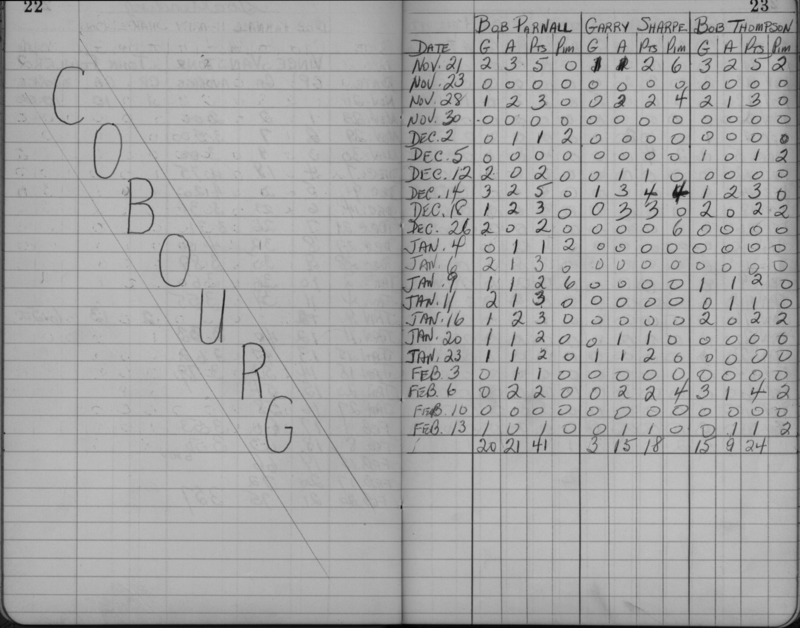 22
COBOURG
23
BOB PARNALL GARRY SHARPE BOB THOMPSON
DATE G A Pts Pim G A Pts Pim G A Pts Pim
NOV. 21 2 3 5 0 1 1 2 6 3 2 5 2
NOV. 23 0 0 0 0 0 0 0 0 0 0 0 0
NOV. 28 1 2 3 0 0 2 2 4 2 1 3 0
NOV. 30 0 0 0 0 0 0 0 0 0 0 0 0
DEC. 2 0 1 1 2 0 0 0 0 0 0 0 0
DEC. 5 0 0 0 0 0 0 0 0 1 0 1 2
DEC. 12 2 0 2 0 0 1 1 0 0 0 0 0
DEC. 14 3 2 5 0 1 3 4 4 1 2 3 0
DEC. 18 1 2 3 0 0 3 3 0 2 0 2 2
DEC. 26 2 0 2 0 0 0 0 6 0 0 0 0
JAN. 4 0 1 1 2 0 0 0 0 0 0 0 0
JAN. 6 2 1 3 0 0 0 0 0 0 0 0 0
JAN. 9 1 1 2 6 0 0 0 0 1 1 2 0
JAN. 11 2 1 3 0 0 0 0 0 0 1 1 0
JAN. 16 1 2 3 0 0 0 0 0 2 0 2 2
JAN. 20 1 1 2 0 0 1 1 0 0 0 0 0
JAN. 23 1 1 2 0 1 1 2 0 0 0 0 0
FEB. 3 0 1 1 0 0 0 0 0 0 0 0 0
FEB. 6 0 2 2 0 0 2 2 4 3 1 4 2
FEB. 10 0 0 0 0 0 0 0 0 0 0 0 0
FEB. 13 1 0 1 0 0 1 1 0 0 1 1 2
20 21 41 3 15 18 15 9 24